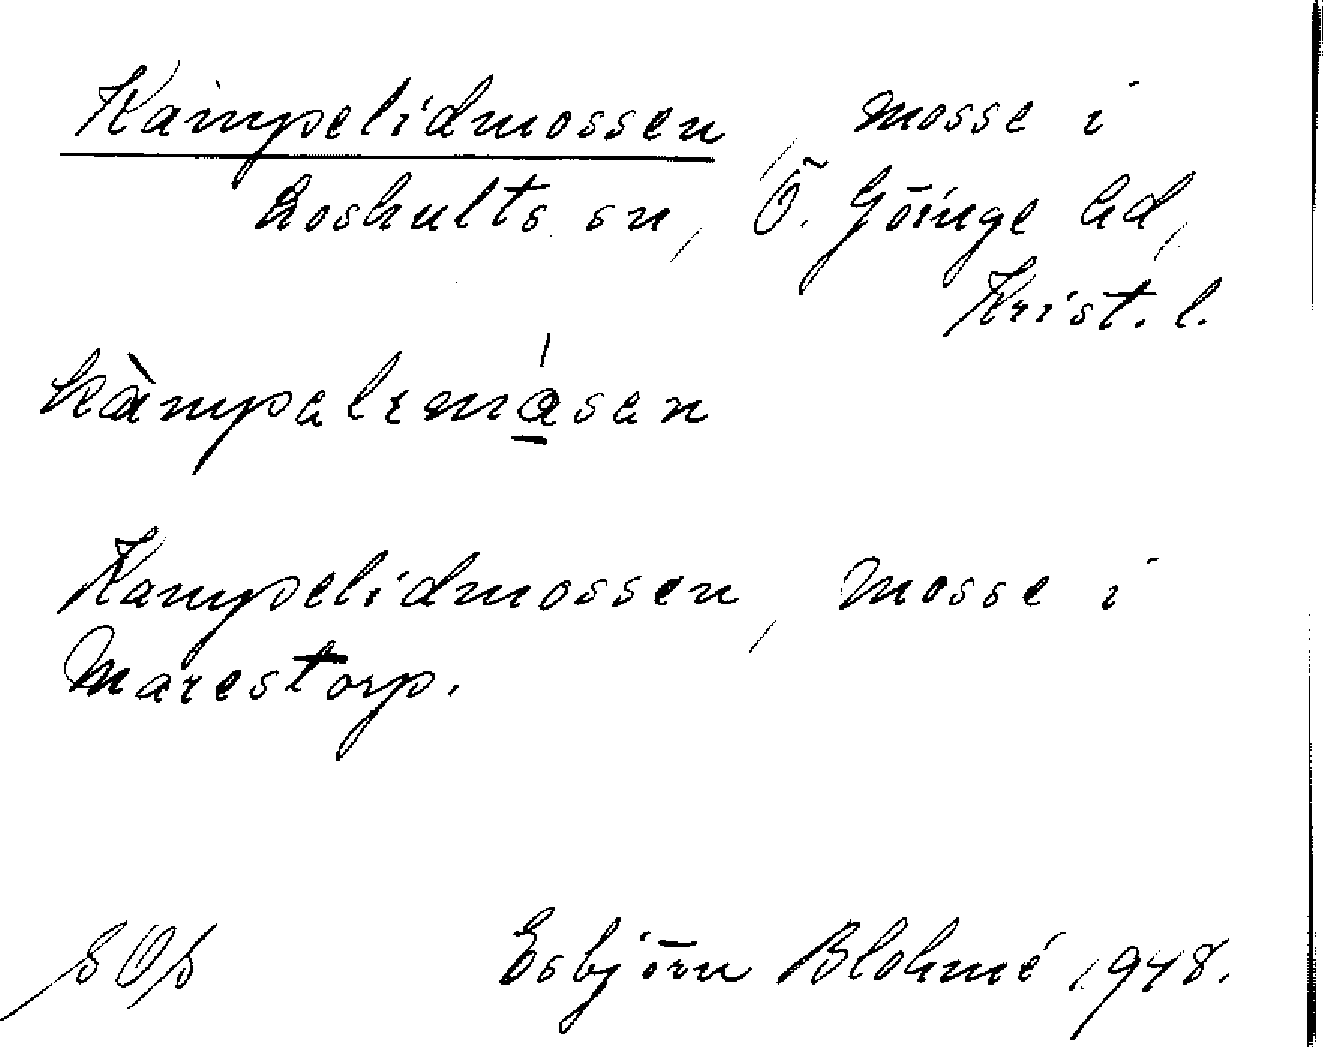 Kämpelidmossen, mosse i
Loshults sn, Ö. Göinge hd,
Krist. l.
kàmpalemásan
Kampelidmossen, mosse i
Marestorp.
Esbjörn Blohmé 1948.